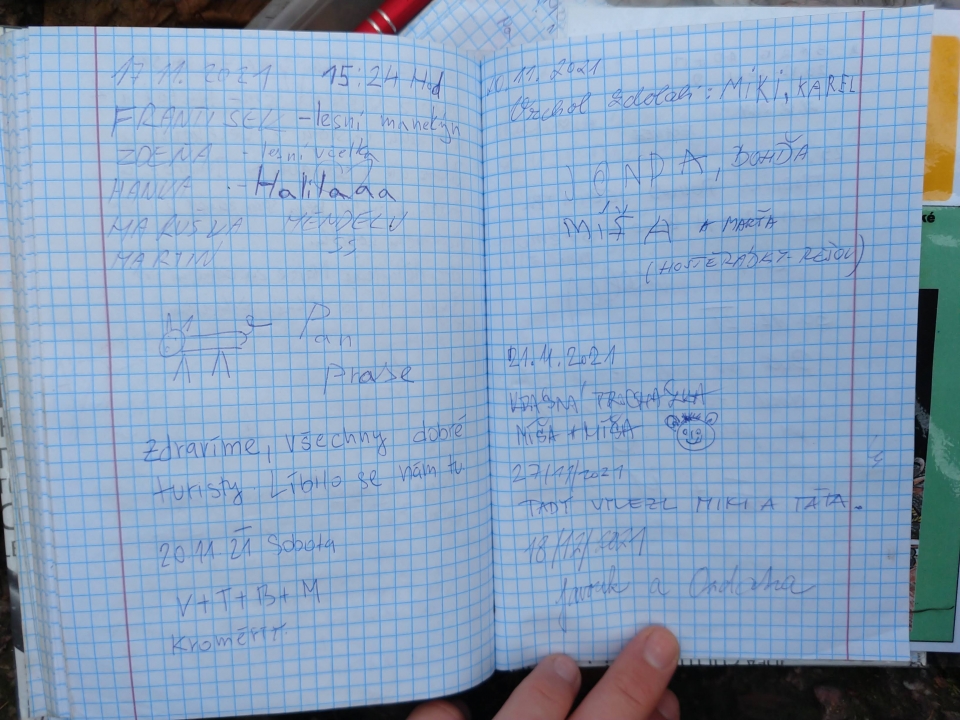 17.11.2021 15:24 Hod
FRANTIŠEK - lesní manekýn
ZDENA - lesní včelka
HANKA - Halitááá
MARUŠKA MENDELU
MARTIN
Pan
Prase
Zdravíme, všechny dobré
turisty. Líbilo se nám tu
20.11.21 Sobota
V+T+B+M
Kroměříž
20.11.2021
Vrchol zdolali: MIKI, KAREL
JONDA, BOHĎA
MÍŠA A MARŤA
(HOSTĚRÁDKY-REŠOV)
21.11.2021
KRÁSNÁ PROCHÁZKA
MÍŠA + MÍŠA
27/11/2021
TADY VYLEZL MIKI A TÁTA.
18/12/2021
a Ondrska